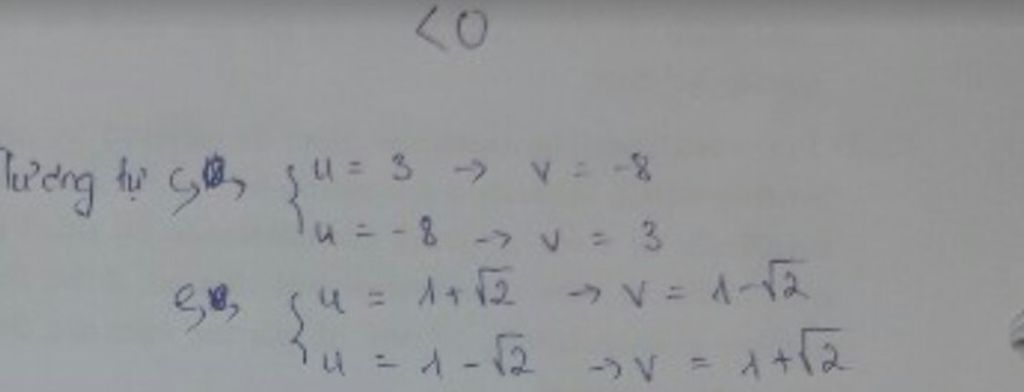 < 0
Tương tự c, { u = 3 → v = -8
u = -8 → v = 3
e, { u = 1+√2 → v = 1-√2
u = 1-√2 → v = 1+√2